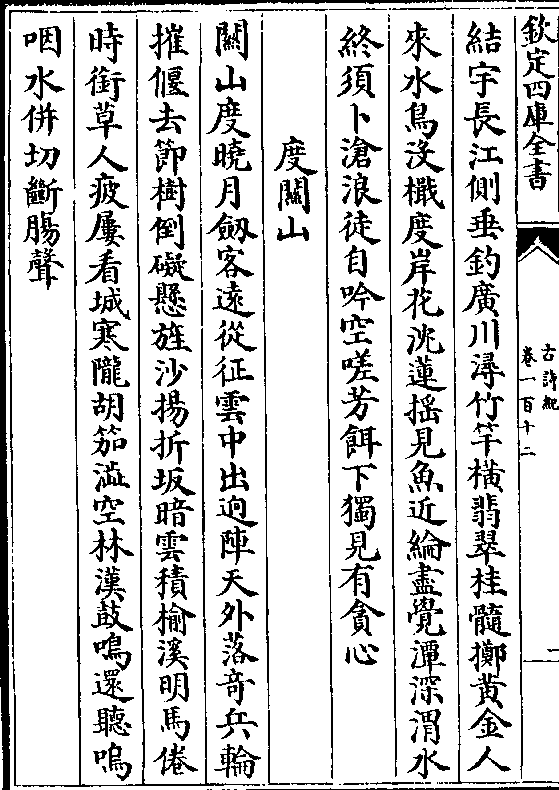 欽定四庫全書
古詩紀
卷一百十二
結宇長江側垂釣廣川潯竹竿橫翡翠桂髓擲黄金人
來水鳥没檝度岸花沈蓮摇見魚近綸盡覺潭深渭水
終須卜滄浪徒自吟空嗟芳餌下獨見有貪心
度關山
關山度曉月劒客遠從征雲中出迥陣天外落奇兵輪
摧偃去節樹倒礙懸旌沙揚折坂暗雲積榆溪明馬倦
時銜草人疲屢看城寒隴胡笳澁空林漢鼓鳴還聽嗚
咽水併切斷腸聲